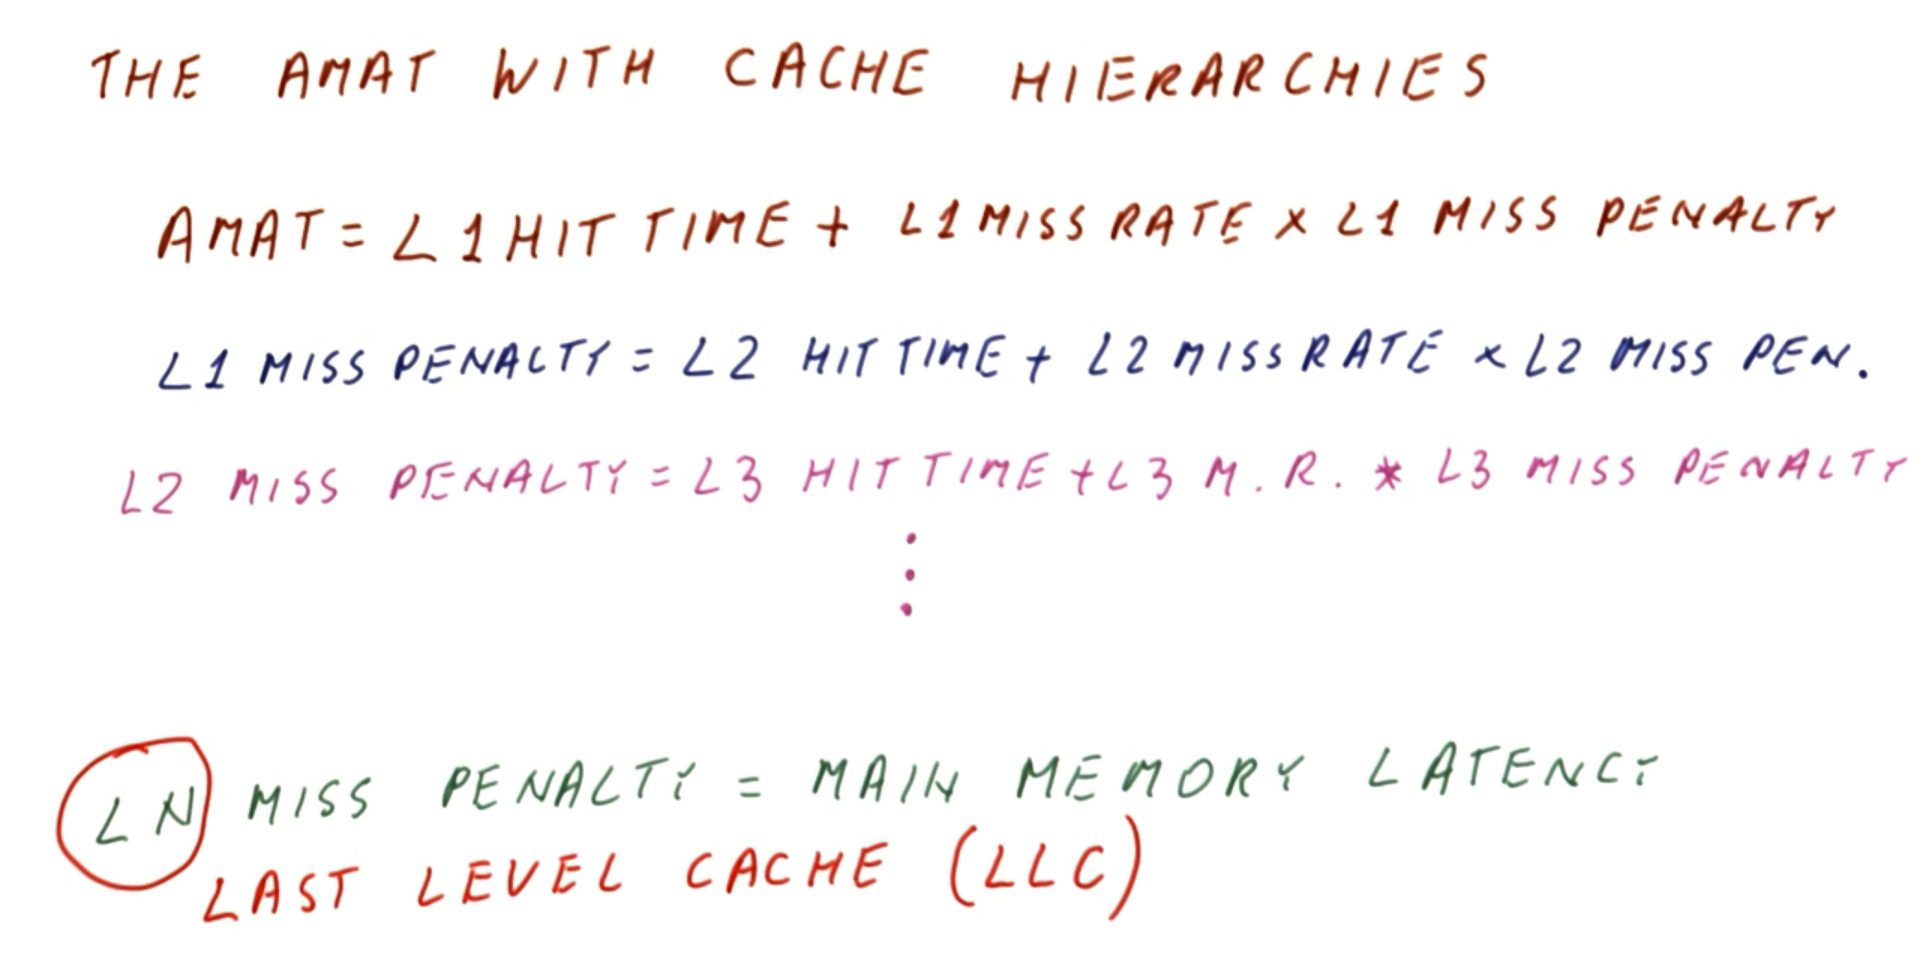 THE AMAT WITH CACHE HIERARCHIES
AMAT = L1 HIT TIME + L1 MISS RATE × L1 MISS PENALTY
L1 MISS PENALTY = L2 HIT TIME + L2 MISS RATE × L2 MISS PEN.
L2 MISS PENALTY = L3 HIT TIME + L3 M.R. * L3 MISS PENALTY
⋮
LN MISS PENALTY = MAIN MEMORY LATENCY
LAST LEVEL CACHE (LLC)